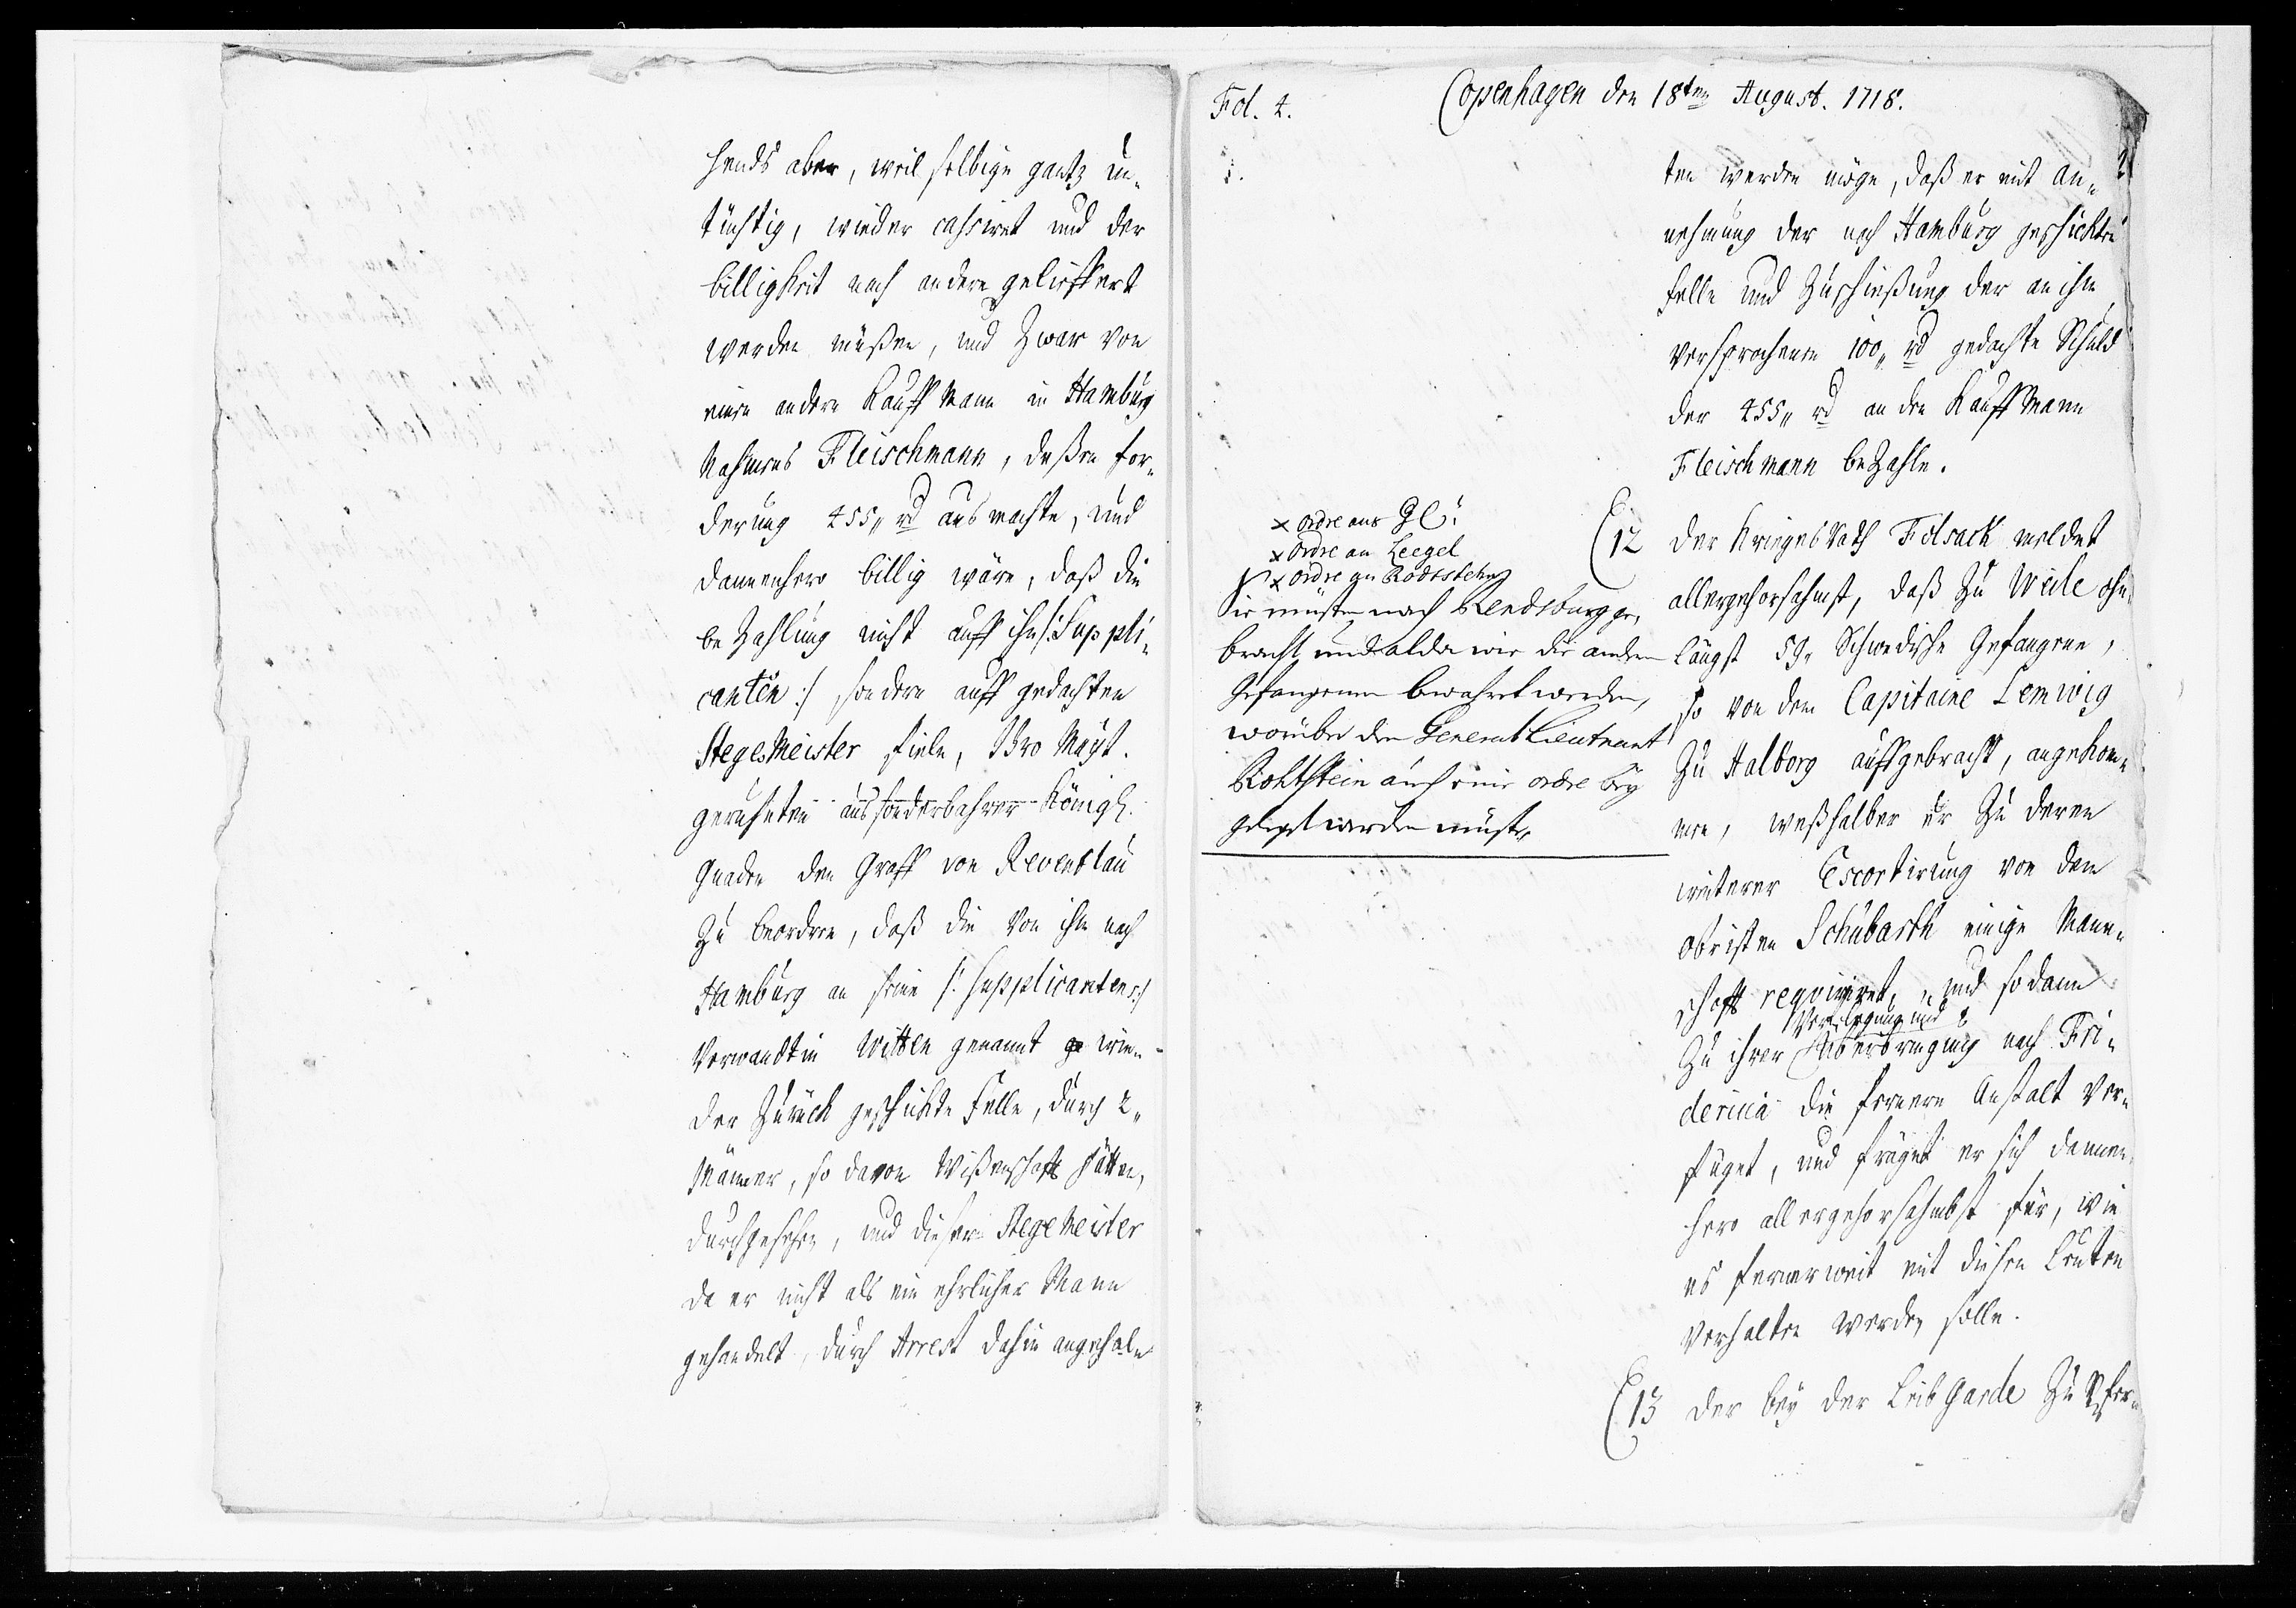 hends aber, weil selbige gantz un-
tüchtig, wieder cassiret und der
billigkeit nach andere geliefert
werden müßen, und zwar von
einen andern Kauff Mann in Hamburg
Nahmens Fleischmann, deßen for-
derung 455„ rd ausmachte, und
dannenhero billig wäre, daß die
bezahlung nicht auff ihn /: Suppli-
canten :/ sondern auff gedachten
StegeMeister fiele, Ihro Mayt.
geruheten aus sonderbahrer Königl.
Gnaden den Graff von Reventlau
zu beordren, daß die von ihm nach
Hamburg an seine /: Supplicanten :/
Verwandtin Witten genannt wie-
der zurück geschickte Felle, durch 2„
Männer, so davon Wißenschafft hätten,
durchgesehen, und diesem StegeMeister
da er nicht als ein ehrlicher Mann
gehandelt, durch Arrest dahin angehal-
Fol. 4.
Copenhagen den 18ten August. 1718.
2
ten werden möge, daß er mit An-
nehmung der nach Hamburg geschickten
Felle und Zuschießung der an ihm
versprochenen 100„ rd gedachte Schuld
der 455„ rd an den Kauff Mann
Fleischmann bezahle.
x ordre ans GC:
x Ordre an Leegel
x ordre an Rodtsteen
Sie müsten nach Rendsburg ge-
bracht und alda wie die andern
Gefangenen bewahret werden,
worüber dem General Lieutenant
Rohtstein auch eine ordre bey
gelegt werden müste,
12 Der KriegesRath Folsack meldet
allergehorsahmst, daß zu Wiele ohn-
längst 59„ Schwedische Gefangene,
so von dem Capitaine Lemwig
zu Aalborg auffgebracht, angekom-
men, weßhalber er zu deren
weiterer Escortirung von dem
Obristen Schubarth einige Mann-
schafft requiriret, und sodann
Verpflegung und
zu ihrer Überbringung nach Fri-
dericia die fernere Anstalt ver-
füget, und fräget er sich dannen-
hero allergehorsahmbst für, wie
es fernerweit mit diesen Leuten
verhalten werden solle.
13 Der bey der Leib Garde zu Pfer-